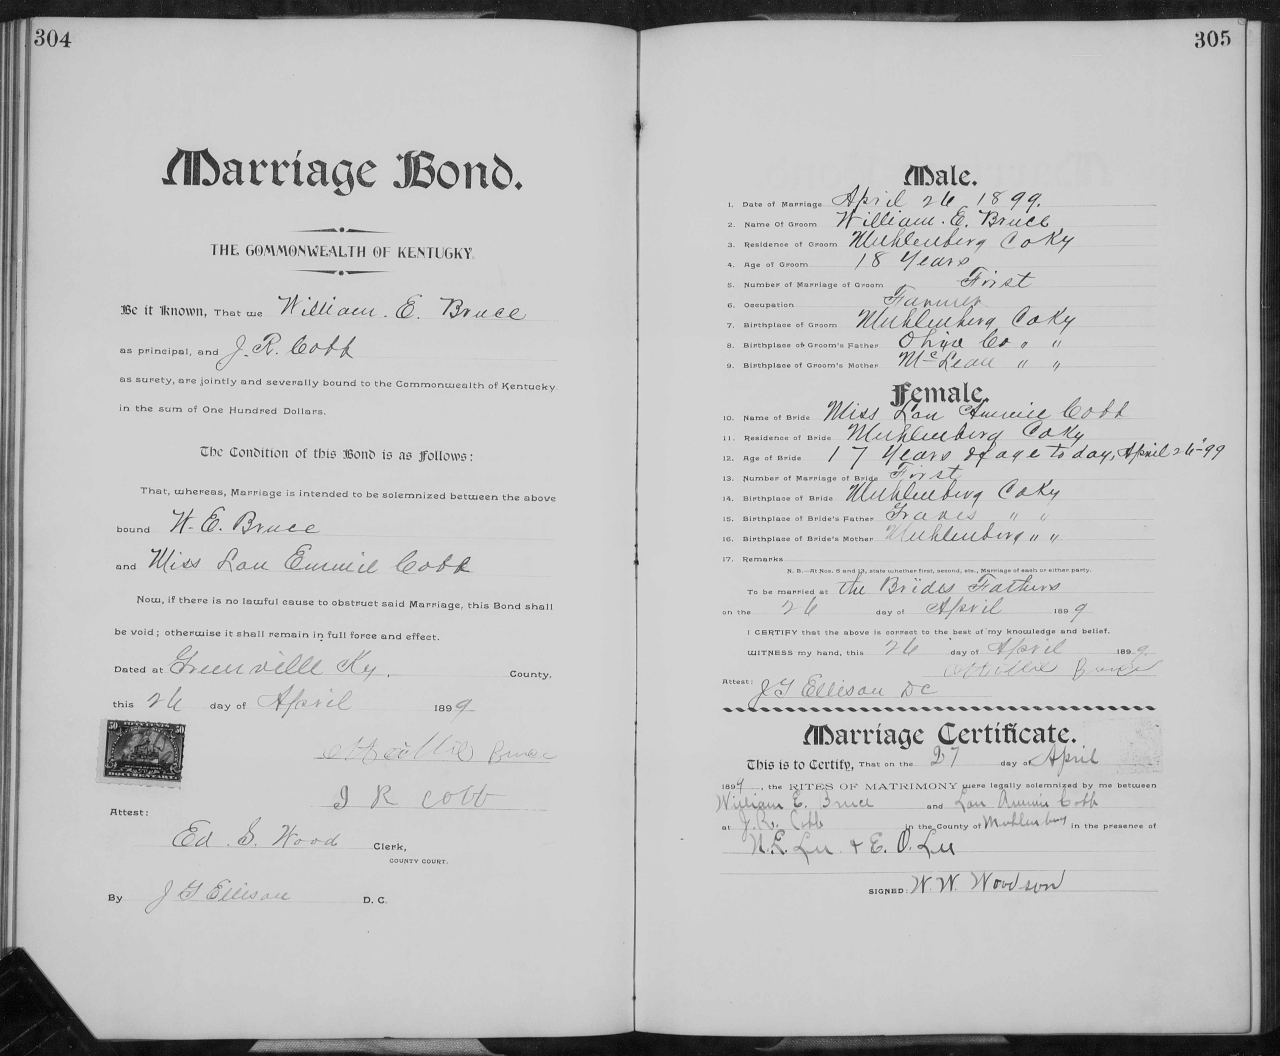 304
Marriage Bond.
THE COMMONWEALTH OF KENTUCKY.
Be it Known, That we William. E. Bruce
as principal, and J. R. Cobb
as surety, are jointly and severally bound to the Commonwealth of Kentucky
in the sum of One Hundred Dollars.
The Condition of this Bond is as Follows:
That, whereas, Marriage is intended to be solemnized between the above
bound W. E. Bruce
and Miss Lou Emmie Cobb
Now, if there is no lawful cause to obstruct said Marriage, this Bond shall
be void; otherwise it shall remain in full force and effect.
Dated at Greenville Ky. County,
this 26 day of April 1899
50 50
DOCUMENTARY
Willie Bruce
J R Cobb
Attest:
Ed. S. Wood Clerk,
COUNTY COURT.
By J G Ellison D. C.
305
Male.
1. Date of Marriage April 26 1899.
2. Name Of Groom William. E. Bruce
3. Residence of Groom Muhlenberg Co Ky
4. Age of Groom 18 Years
5. Number of Marriage of Groom First
6. Occupation Farmer
7. Birthplace of Groom Muhlenberg Co Ky
8. Birthplace of Groom's Father Ohio Co " "
9. Birthplace of Groom's Mother McLean " "
Female.
10. Name of Bride Miss Lou Emmie Cobb
11. Residence of Bride Muhlenberg Co Ky
12. Age of Bride 17 Years of age to day, April 26-99
13. Number of Marriage of Bride First
14. Birthplace of Bride Muhlenberg Co Ky
15. Birthplace of Bride's Father Graves " "
16. Birthplace of Bride's Mother Muhlenberg " "
17. Remarks
N. B.—At Nos. 5 and 13, state whether first, second, etc., Marriage of each or either party.
To be married at the Brides Fathers
on the 26 day of April 1899
I CERTIFY that the above is correct to the best of my knowledge and belief.
WITNESS my hand, this 26 day of April 1899
Willie Bruce
Attest: J G Ellison DC
Marriage Certificate.
This is to Certify, That on the 27 day of April
1899, the RITES OF MATRIMONY were legally solemnized by me between
William E. Bruce and Lou Cobb
at J. R. Cobb in the County of Muhlenburg in the presence of
N. E. Lee & E. O. Lee
SIGNED: W. W. Woodson